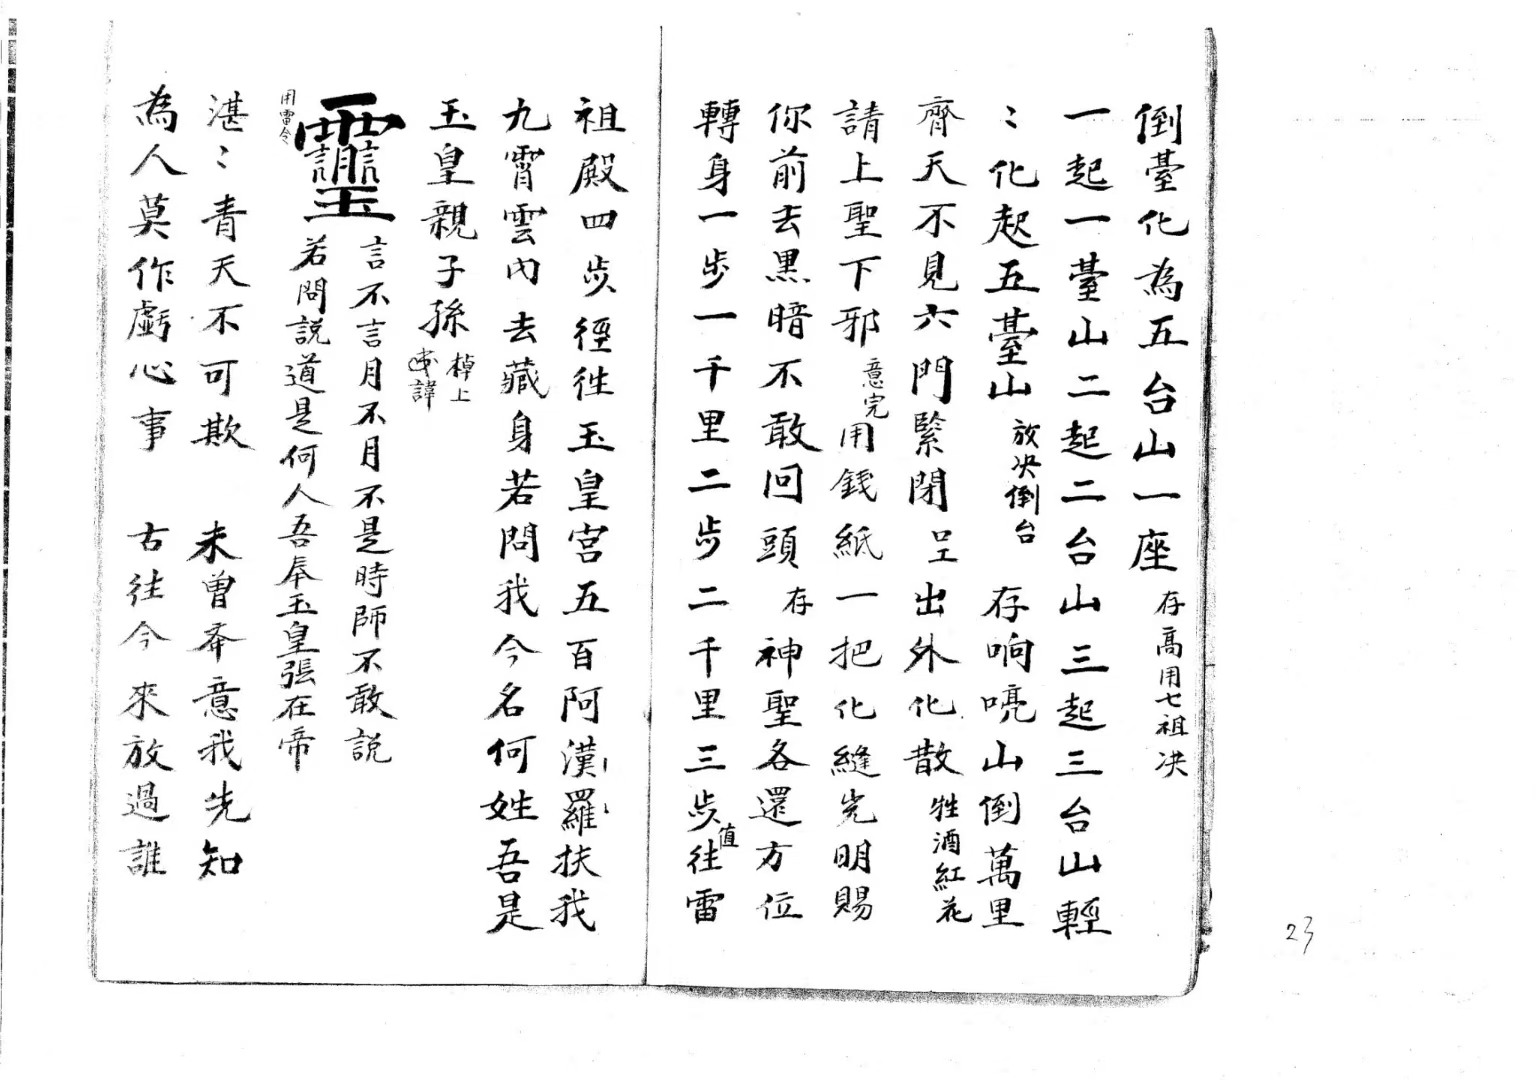 倒臺化為五台山一座 存高用七祖决
一起一臺山二起二台山三起三台山輕
〻化起五臺山 放决倒台 存响喨山倒萬里
齊天不見六門緊閉 출 出外化散 牲酒紅花
請上聖下邪 意完 用錢紙一把化縫光明賜
你前去黑暗不敢回頭 存 神聖各還方位
轉身一步一千里二步二千里三步往值雷
祖殿四步徑往玉皇宮五百阿漢羅扶我
九霄雲內去藏身若問我今名何姓吾是
玉皇親子孫 棹上 諱
用雷令
言不言月不月不是時師不敢説
若問説道是何人吾奉玉皇張在帝
湛〻青天不可欺 未曾舉意我先知
為人莫作虧心事 古往今來放過誰
23